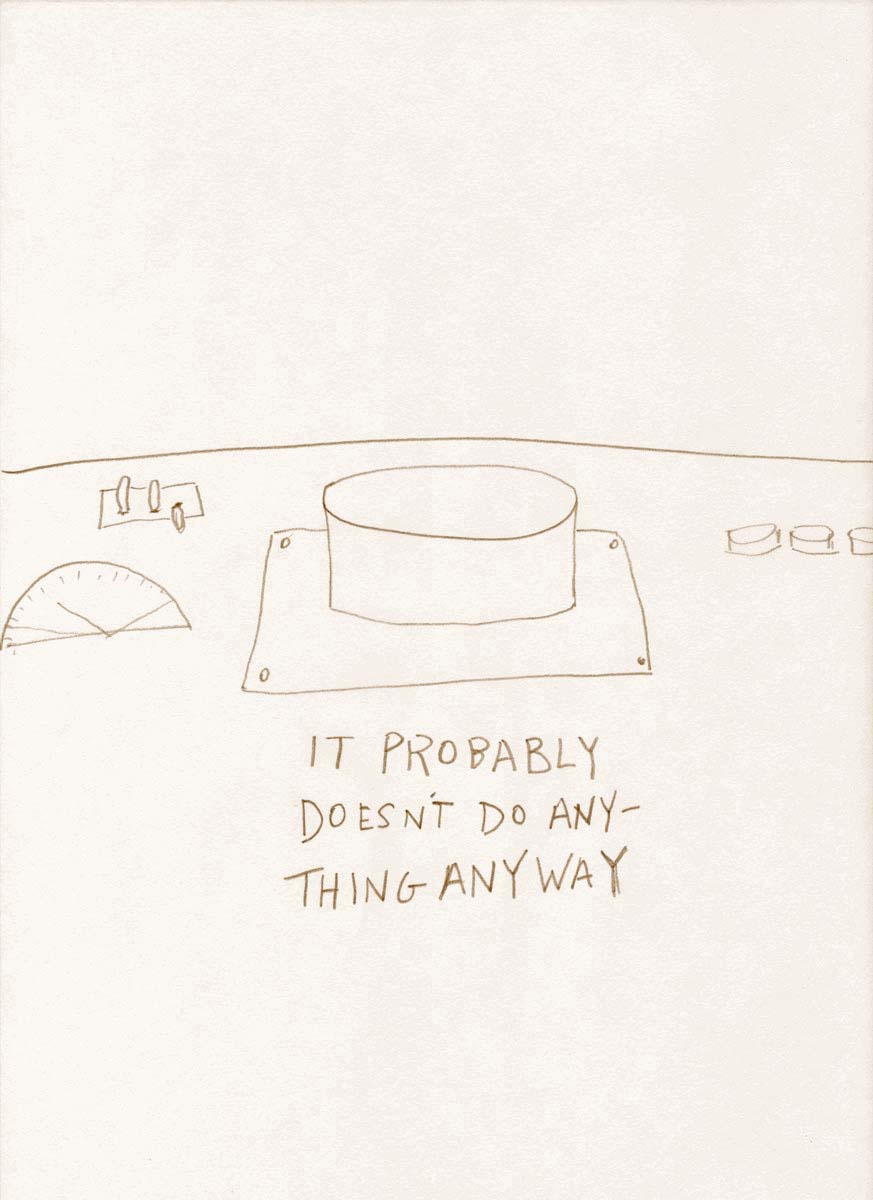 IT PROBABLY
DOESN'T DO ANY-
THING ANYWAY